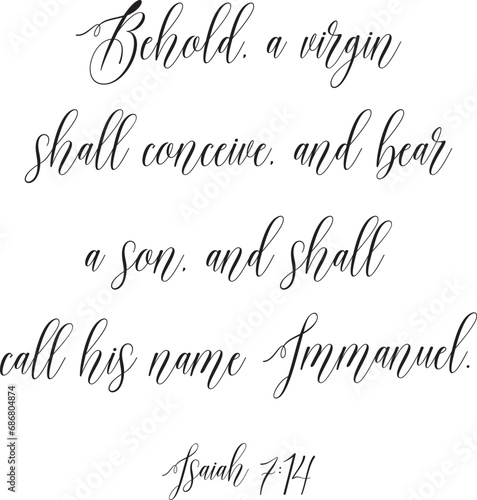 Behold, a virgin
shall conceive, and bear
a son, and shall
call his name Immanuel.
Isaiah 7:14
Adobe Stock | #686804874